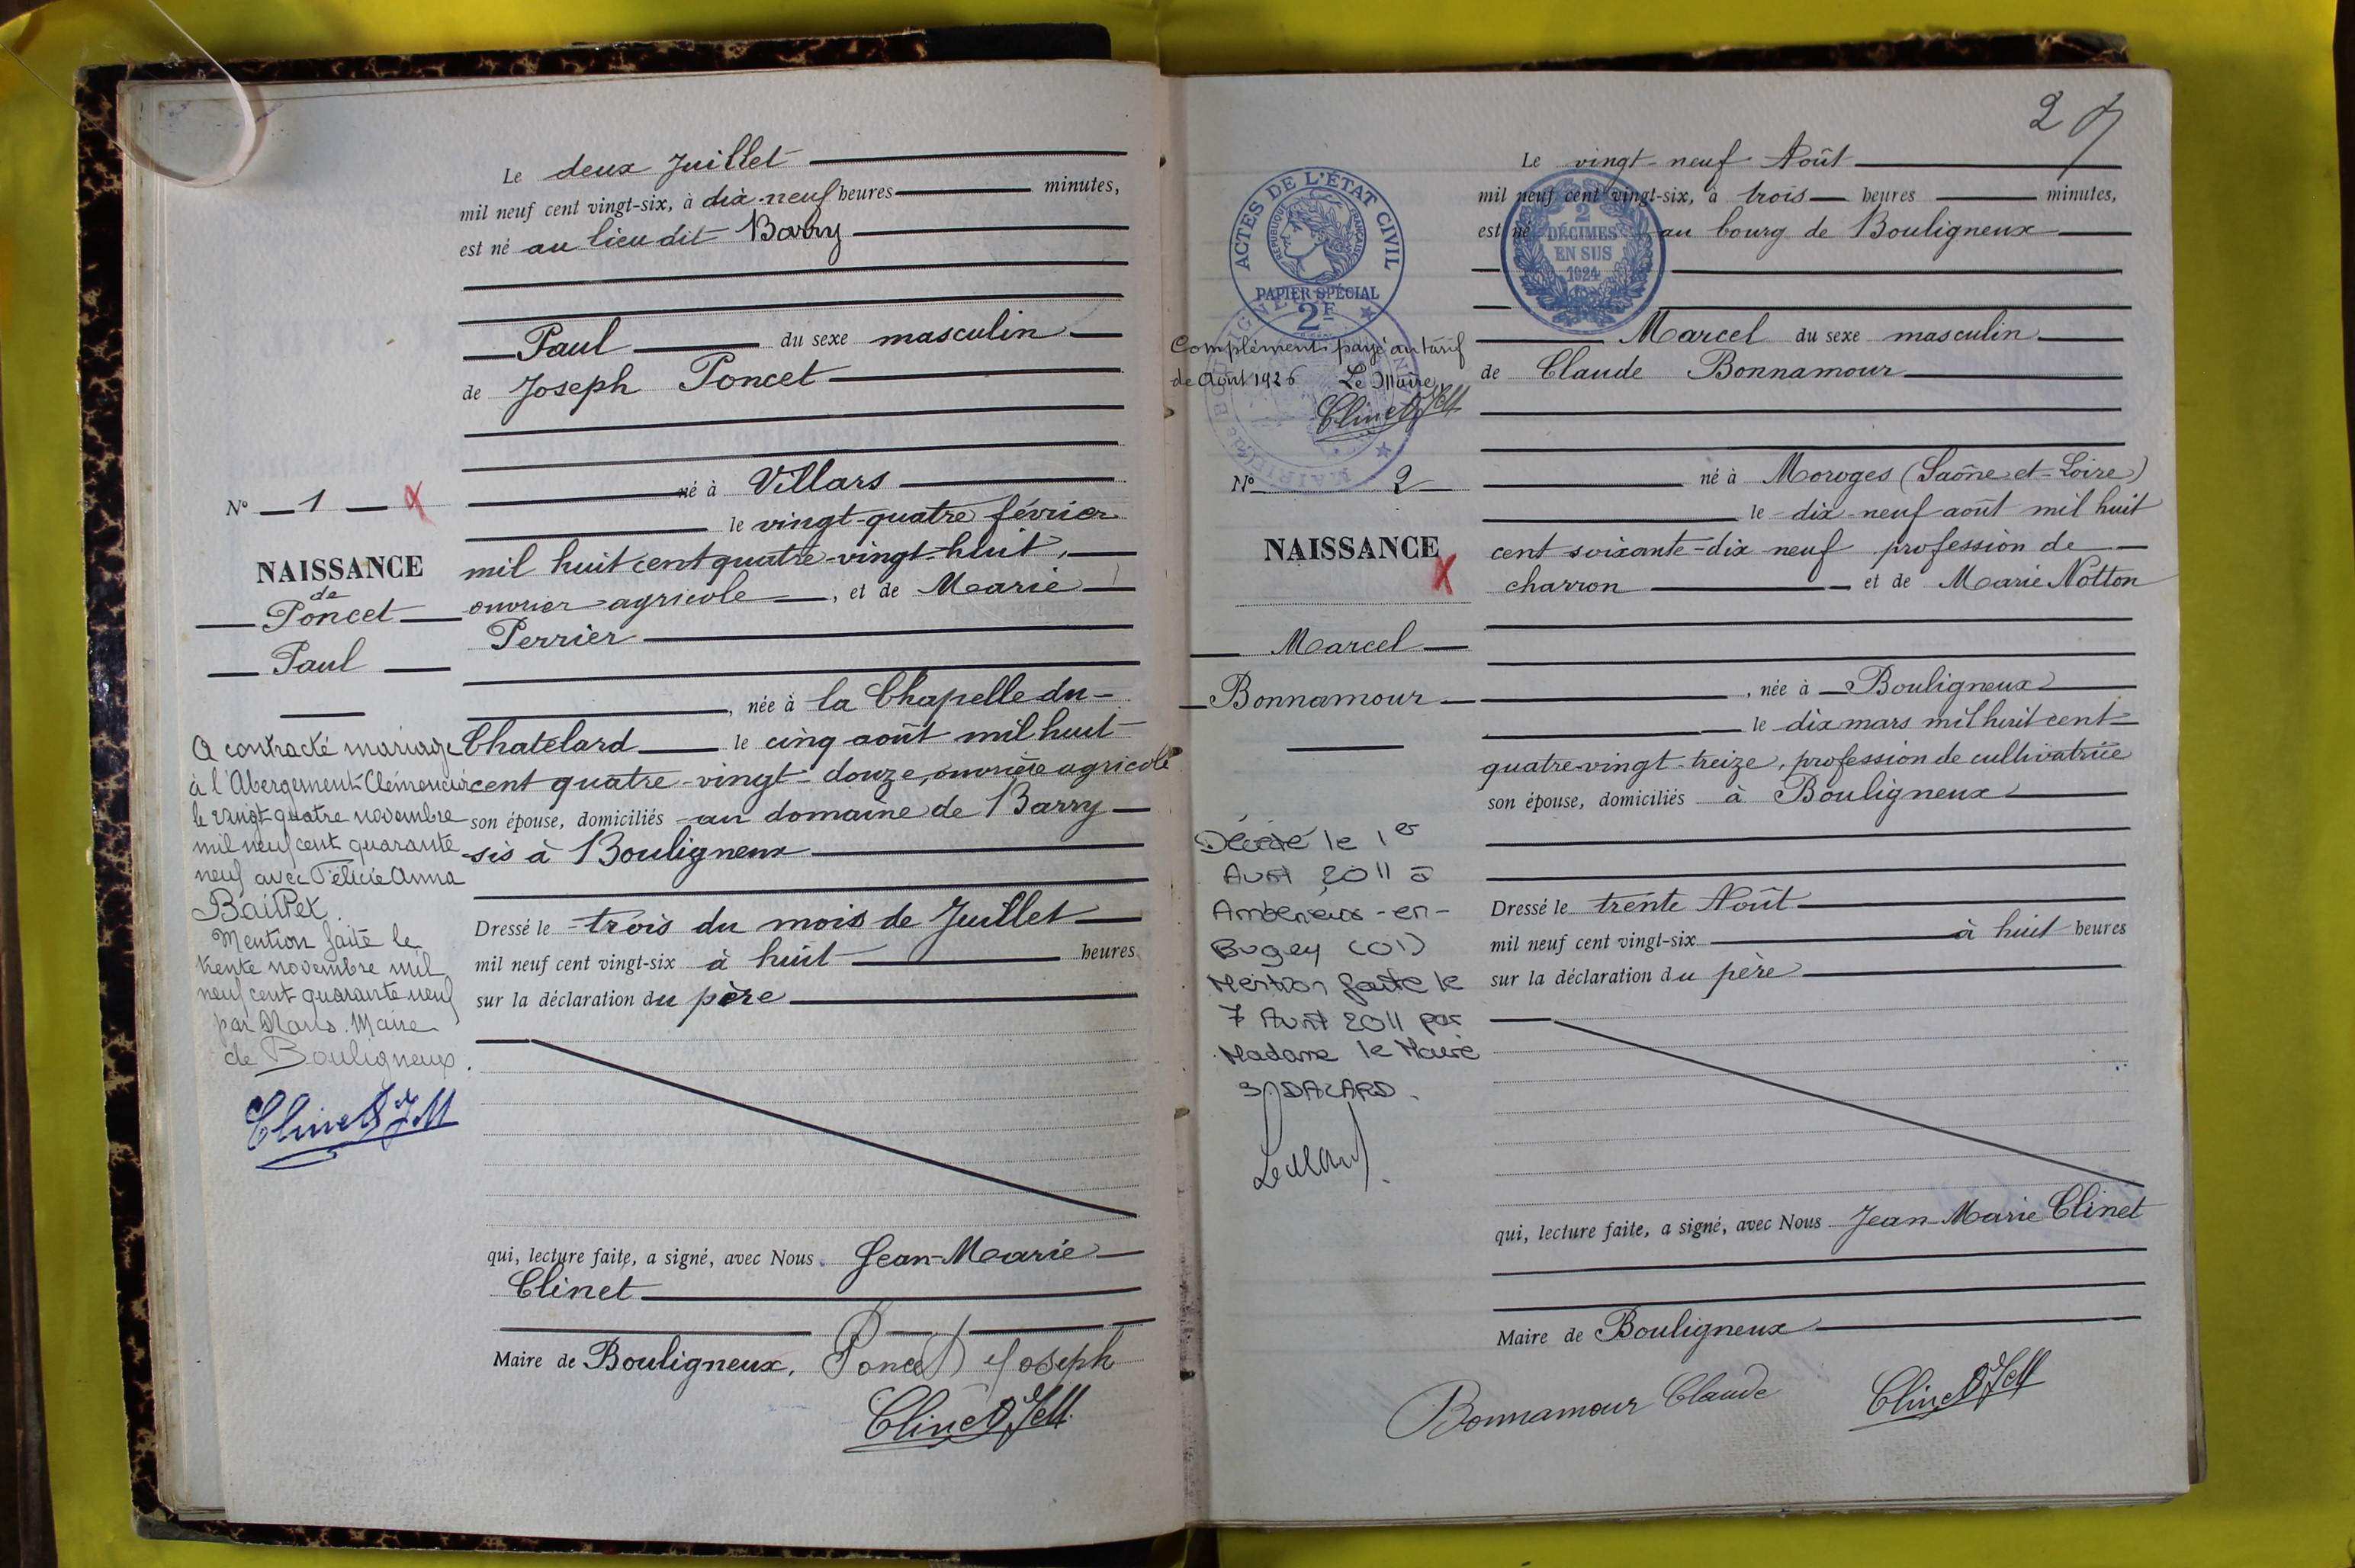 Le deux Juillet
mil neuf cent vingt-six, à dix-neuf heures minutes,
est né au lieu dit Barry
Paul du sexe masculin
de Joseph Poncet
né à Villars
le vingt-quatre février
mil huit cent quatre-vingt-huit,
ouvrier agricole, et de Marie
Perrier
, née à la Chapelle du-
Chatelard le cinq août mil huit
cent quatre-vingt-douze, ouvrière agricole
son épouse, domiciliés au domaine de Barry
sis à Bouligneux
Dressé le trois du mois de Juillet
mil neuf cent vingt-six à huit heures
sur la déclaration du père
qui, lecture faite, a signé, avec Nous Jean-Marie
Clinet
Maire de Bouligneux. Poncet Joseph
Clinet JM
N° 1
NAISSANCE
de
Poncet
Paul
A contracté mariage
à l'Abergement-Clémenciat
le vingt quatre novembre
mil neuf cent quarante
neuf avec Félicie Anna
Mention faite le
trente novembre mil
neuf cent quarante neuf
par Nous. Maire
de Bouligneux.
Clinet JM
2
ACTES DE L'ÉTAT CIVIL
RÉPUBLIQUE FRANÇAISE
PAPIER SPÉCIAL
2F
Complément payé au tarif
de Août 1926 Le Maire,
Clinet JM
N° 2
NAISSANCE
Marcel
Bonnamour
Décédé le 1er
Avril 2011 à
Ambérieux-en-
Bugey (01)
Mention faite le
7 Avril 2011 par
Madame le Maire
Le vingt-neuf Août
mil neuf cent vingt-six, à trois heures minutes,
est né au bourg de Bouligneux
2
DÉCIMES
EN SUS
1924
Marcel du sexe masculin
de Claude Bonnamour
né à Moroges (Saône-et-Loire)
le dix-neuf août mil huit
cent soixante-dix neuf profession de
charron et de Marie Notton
, née à Bouligneux
le dix mars mil huit cent
quatre-vingt-treize, profession de cultivatrice
son épouse, domiciliés à Bouligneux
Dressé le trente Août
mil neuf cent vingt-six à huit heures
sur la déclaration du père
qui, lecture faite, a signé, avec Nous Jean-Marie Clinet
Maire de Bouligneux
Bonnamour Claude Clinet JM